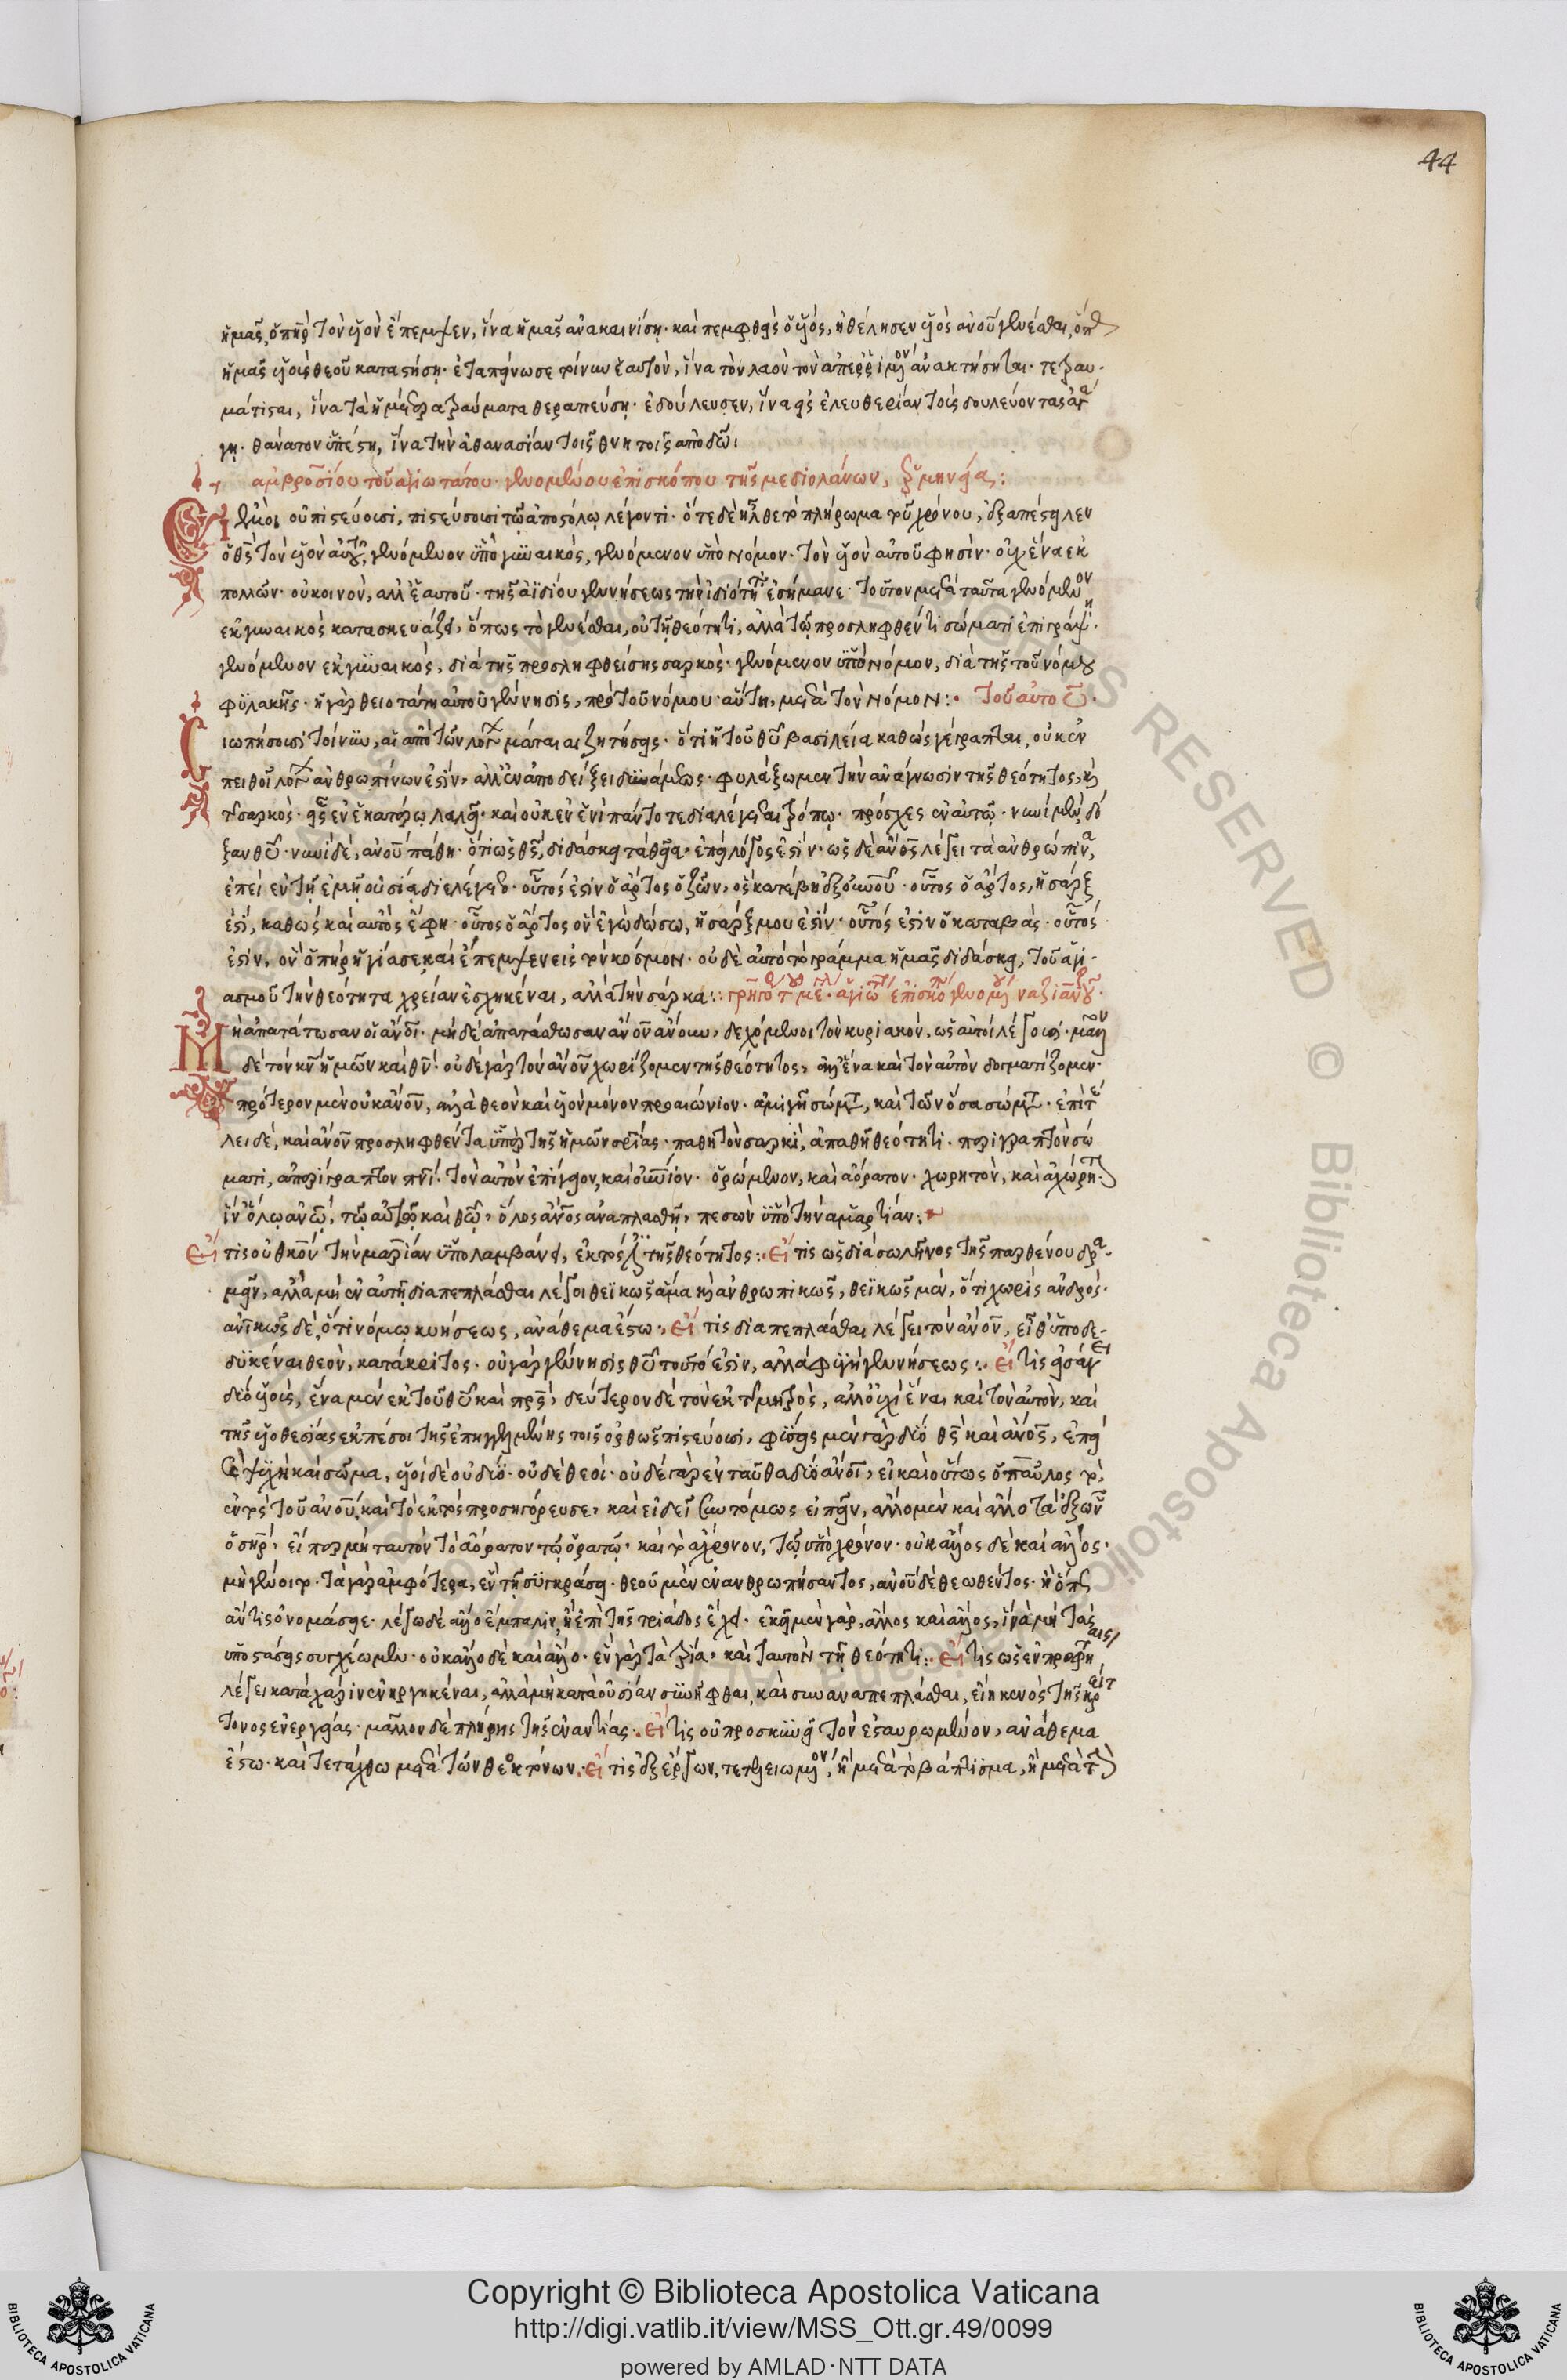 44
ἡμᾶς, ὁ πηρ τὸν υἱὸν ἔπεμψεν, ἵνα ἡμᾶς ἀνακαινίση· καὶ πεμφθεὶς ὁ υἱός, ἠθέλησεν υἱὸς ἀνου γενέσθαι,
ἡμᾶς υἱοὺς θεοῦ καταστήση· ἐταπείνωσε τοίνυν ἑαυτὸν, ἵνα τὸν λαὸν τὸν ἀνακτήσηται·
μάτισται, ἵνα τὰ ἡμέτερα τραύματα θεραπεύση· ἐδούλευσεν, ἵνα εἰς ἐλευθερίαν τοὺς δουλεύοντας
γη· θάνατον ὑπέστη, ἵνα τὴν ἀθανασίαν τοῖς θνητοῖς ἀποδῶ:
ἀμβροσίου τοῦ ἁγιωτάτου· γενομένου ἐπισκόπου τῆς μεδιολάνων, ἑρμηνεία:
Εἰ ἐμοὶ οὐ πιστεύουσι, πιστεύσουσι τῶ ἀποστόλω λέγοντι· ὅτε δὲ ἦλθε τὸ πλήρωμα τοῦ χρόνου, ἐξαπέστειλεν
ὁ θς τὸν υἱὸν αὐτοῦ, γενόμενον ὑπὸ γυναικός, γενόμενον ὑπὸ νόμον· τὸν υἱὸν αὐτοῦ φησίν· οὐχ ἕνα ἐκ
πολλῶν· οὐ κοινὸν, ἀλλ' ἐξ αὐτοῦ· τῆς ἀϊδίου γεννήσεως τὴν ἰδιότητα ἐσήμανε· τοῦτον μετὰ ταῦτα γενόμενον
ἐκ γυναικὸς κατασκευάζει, ὅπως τὸ γενέσθαι, οὐ τῆ θεότητι, ἀλλὰ τῶ προσληφθέντι σώματι ἐπιγράψη·
γενόμενον ἐκ γυναικός, διὰ τῆς προσληφθείσης σαρκός· γενόμενον ὑπὸ νόμον, διὰ τῆς τοῦ νόμου
φυλακῆς· ἡ γὰρ θειοτάτη αὐτοῦ γέννησις, πρὸ τοῦ νόμου· αὕτη, μετὰ τὸν νόμον: τοῦ αὐτοῦ·
Σιωπήσουσι τοίνυν, αἱ ἀπὸ τῶν λόγων μάταιαι ζητήσεις· ὅτι ἡ τοῦ θυ βασιλεία καθὼς γέγραπται, οὐκ ἐν
πειθοῖ λόγων ἀνθρωπίνων ἐστὶν, ἀλλ' ἐν ἀποδείξει δυνάμεως· φυλάξωμεν τὴν ἀνάγνωσιν τῆς θεότητος, καὶ
τῆς σαρκός· εἷς ἐν ἑκατέρω λαλεῖ· καὶ οὐκ ἐν ἑνὶ πάντοτε διαλέγεται τρόπω· πρόσχες ἐν αὐτῶ· νυνὶ μὲν, δό
ξαν θυ· νυνὶ δὲ, ἀνου πάθη· ὅτι ὡς θς, διδάσκει τὰ θεῖα· ἐπεὶ λόγος ἐστίν· ὡς δὲ ἀνος λέγει τὰ ἀνθρώπινα,
ἐπεὶ ἐν τῆ ἐμῆ οὐσία διελέγετο· οὗτός ἐστιν ὁ ἄρτος ὁ ζῶν, ὃς κατέβη ἐξ οὐνοῦ· οὗτος ὁ ἄρτος, ἡ σάρξ
ἐστί, καθὼς καὶ αὐτὸς ἔφη· οὗτος ὁ ἄρτος ὃν ἐγὼ δώσω, ἡ σάρξ μου ἐστίν· οὗτός ἐστιν ὁ καταβάς· οὗτός
ἐστιν, ὃν ὁ πηρ ἡγίασε, καὶ ἔπεμψεν εἰς τὸν κόσμον· οὐδὲ αὐτὸ τὸ γράμμα ἡμᾶς διδάσκει, τοῦ ἁγι-
ασμοῦ τὴν θεότητα χρείαν ἐσχηκέναι, ἀλλὰ τὴν σάρκα:
Μὴ ἀπατάτωσαν οἱ ἄνοι· μηδὲ ἀπατάσθωσαν ἄνον ἄνουν, δεχόμενοι τὸν κυριακόν, ὡς αὐτοὶ λέγουσι· μᾶλλον
δὲ τὸν κν ἡμῶν καὶ θν· οὐδὲ γὰρ τὸν ἄνον χωρίζομεν τῆς θεότητος, ἀλλ' ἕνα καὶ τὸν αὐτὸν δογματίζομεν·
πρότερον μὲν οὐκ ἄνον, ἀλλὰ θεὸν καὶ υἱὸν μόνον προαιώνιον· ἀμιγῆ σώματος, καὶ τῶν ὅσα σώματος· ἐπὶ τέ
λει δὲ, καὶ ἄνον προσληφθέντα ὑπὲρ τῆς ἡμῶν σρίας· παθητὸν σαρκὶ, ἀπαθῆ θεότητι· περιγραπτὸν σώ
ματι, ἀπερίγραπτον πνι· τὸν αὐτὸν ἐπίγειον, καὶ οὐνιόν· ὁρώμενον, καὶ ἀόρατον· χωρητὸν, καὶ ἀχώρητον
ἵν' ὅλω ἀνω, τῶ αὐτῶ καὶ θω, ὅλος ἄνος ἀναπλασθῆ, πεσὼν ὑπὸ τὴν ἁμαρτίαν:
Εἴ τις οὐ θκον τὴν μαρίαν ὑπολαμβάνει, ἐκτός ἐστι τῆς θεότητος: Εἴ τις ὡς διὰ σωλῆνος τῆς παρθένου δρα-
μεῖν, ἀλλὰ μὴ ἐν αὐτῆ διαπεπλάσθαι λέγοι θεϊκῶς ἅμα καὶ ἀνθρωπικῶς, θεϊκῶς μὲν, ὅτι χωρὶς ἀνδρός·
ἀνικῶς δὲ, ὅτι νόμω κυήσεως, ἀνάθεμα ἔστω· Εἴ τις διαπεπλάσθαι λέγει τὸν ἄνον, εἶθ' ὑποδε-
δυκέναι θεὸν, κατάκριτος· οὐ γὰρ γέννησις θυ τοῦτό ἐστιν, ἀλλὰ φυγὴ γεννήσεως: Εἴ τις εἰσάγει
δύο υἱούς, ἕνα μὲν ἐκ τοῦ θυ καὶ πρς, δεύτερον δὲ τὸν ἐκ τῆς μητρός, ἀλλ' οὐχὶ ἕνα καὶ τὸν αὐτὸν, καὶ
τῆς υἱοθεσίας ἐκπέσοι τῆς ἐπηγγελμένης τοῖς ὀρθῶς πιστεύουσι, φύσεις μὲν γὰρ δύο θς καὶ ἄνος, ἐπεὶ
καὶ ψυχὴ καὶ σῶμα, υἱοὶ δὲ οὐ δύο· οὐδὲ θεοί· οὐδὲ γὰρ ἐνταῦθα δύο ἄνοι, εἰ καὶ οὕτως ὁ παῦλος τὸ
ἐντὸς τοῦ ἀνου, καὶ τὸ ἐκτὸς προσηγόρευσε, καὶ εἰ δεῖ συντόμως εἰπεῖν, ἄλλο μὲν καὶ ἄλλο τὰ ἐξ ὧν
ὁ σηρ, εἴπερ μὴ ταυτὸν τὸ ἀόρατον τῶ ὁρατῶ, καὶ τὸ ἄχρονον, τῶ ὑπὸ χρόνον· οὐκ ἄλλος δὲ καὶ ἄλλος·
μὴ γένοιτο· τὰ γὰρ ἀμφότερα, ἓν τῆ συγκράσει· θεοῦ μὲν ἐνανθρωπήσαντος, ἀνου δὲ θεωθέντος· ἢ ὅπως
ἄν τις ὀνομάσειε· λέγω δὲ ἄλλο ἔμπαλιν, ἢ ἐπὶ τῆς τριάδος ἔχει· ἐκεῖ μὲν γὰρ, ἄλλος καὶ ἄλλος, ἵνα μὴ τὰς
ὑποστάσεις συγχέωμεν· οὐκ ἄλλο δὲ καὶ ἄλλο· ἓν γὰρ τὰ τρία, καὶ ταυτὸν τῆ θεότητι: Εἴ τις ὡς ἐν προφήτη
λέγει κατὰ χάριν ἐνηργηκέναι, ἀλλὰ μὴ κατ' οὐσίαν συνῆφθαι, καὶ συναναπεπλάσθαι, εἴη κενὸς τῆς κρείτ
τονος ἐνεργείας· μᾶλλον δὲ πλήρης τῆς ἐναντίας· Εἴ τις οὐ προσκυνεῖ τὸν ἐσταυρωμένον, ἀνάθεμα
ἔστω· καὶ τετάχθω μετὰ τῶν θεοκτόνων· Εἴ τις ἐξ ἔργων, τετελειωμένον, ἢ μετὰ τὸ βάπτισμα, ἢ μετὰ τὴν
Copyright © Biblioteca Apostolica Vaticana
http://digi.vatlib.it/view/MSS_Ott.gr.49/0099
powered by AMLAD·NTT DATA